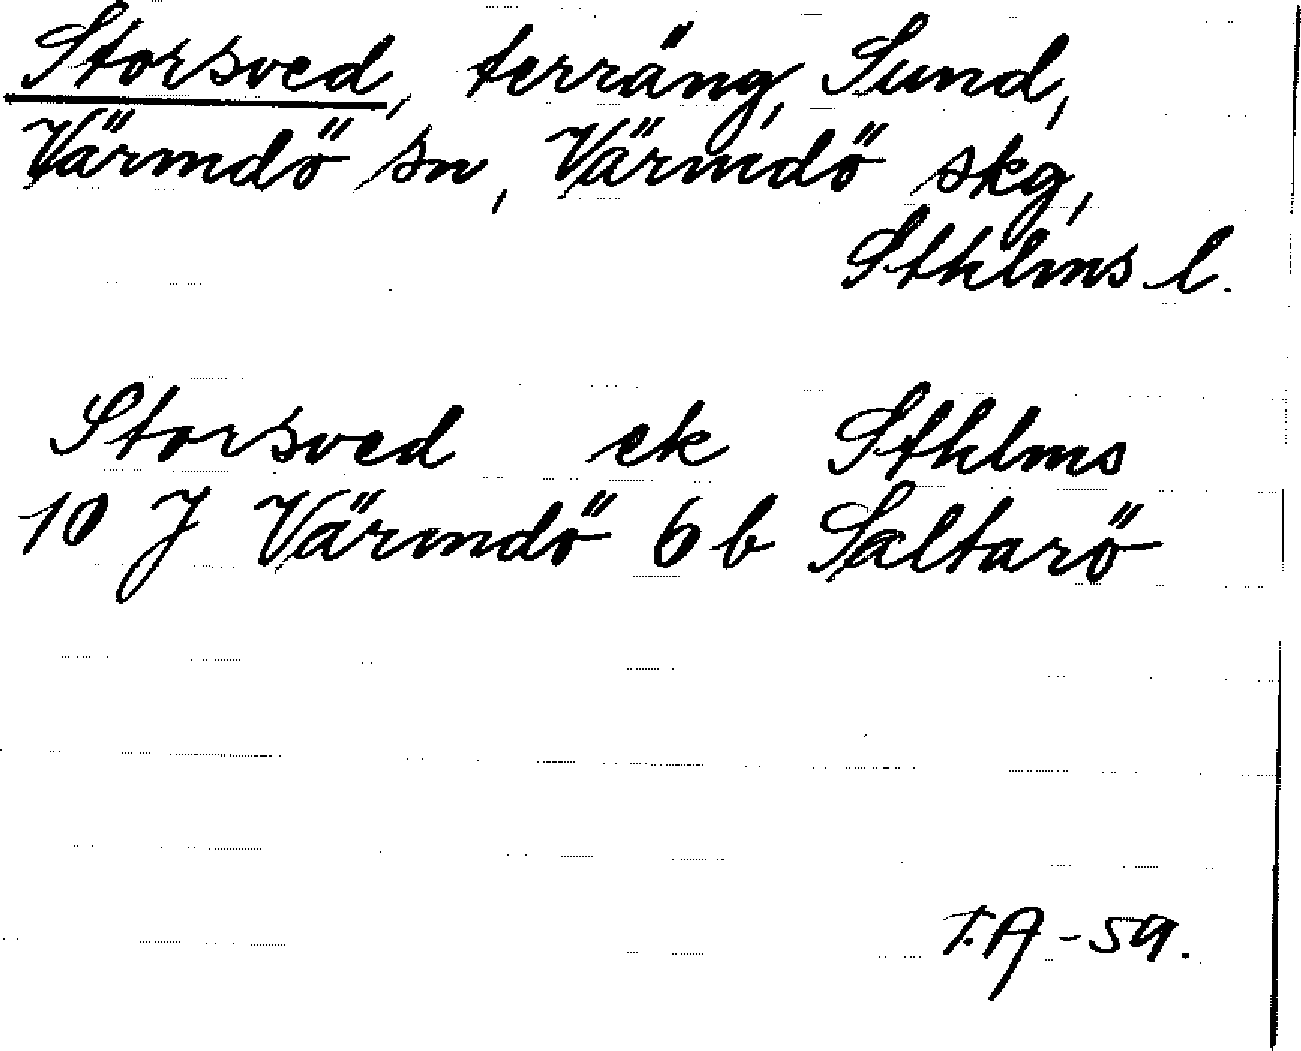 Storsved, terräng, Sund,
Värmdö sn, Värmdö skg,
Sthlms l.
Storsved ek Sthlms
10 J Värmdö 6b Saltarö
T.A -59.